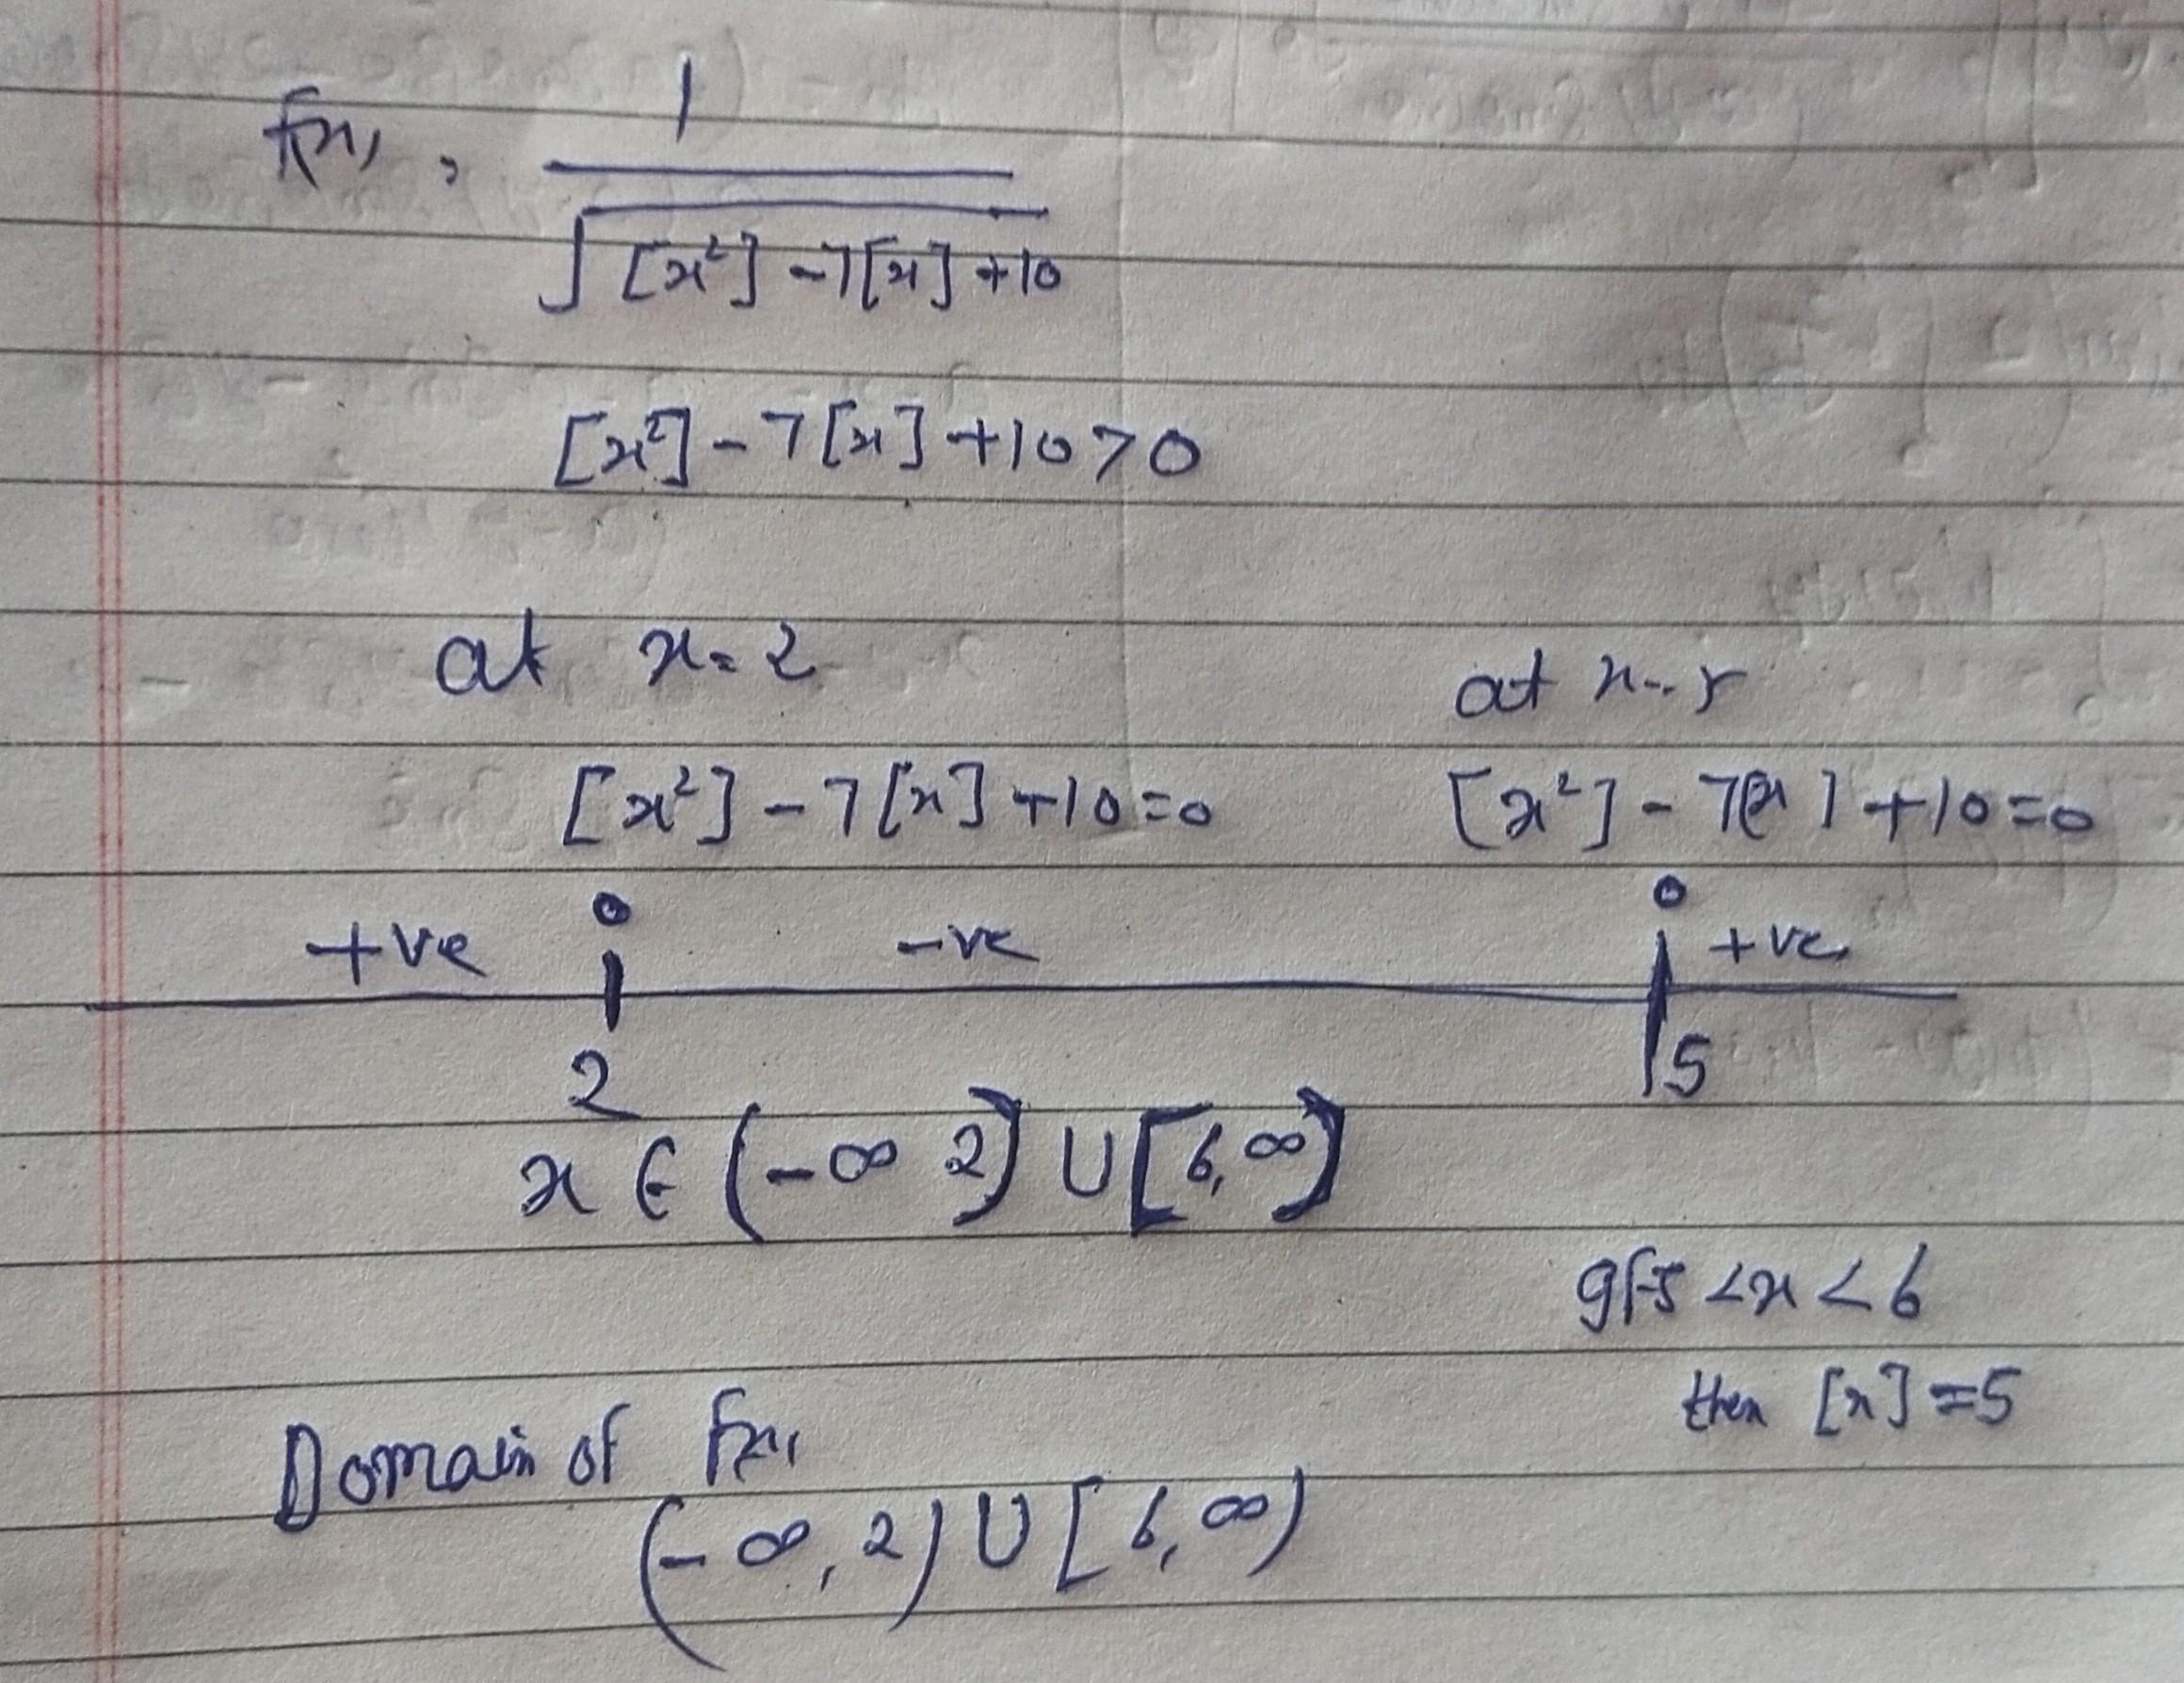 f(x) = 1 / √([x²] - 7[x] + 10)
[x²] - 7[x] + 10 > 0
at x = 2 at x = 5
[x²] - 7[x] + 10 = 0 [x²] - 7[x] + 10 = 0
+ve 0 -ve 0 +ve
2 5
x ∈ (-∞ 2) ∪ [6, ∞)
If 5 < x < 6
then [x] = 5
Domain of f(x)
(-∞, 2) ∪ [6, ∞)